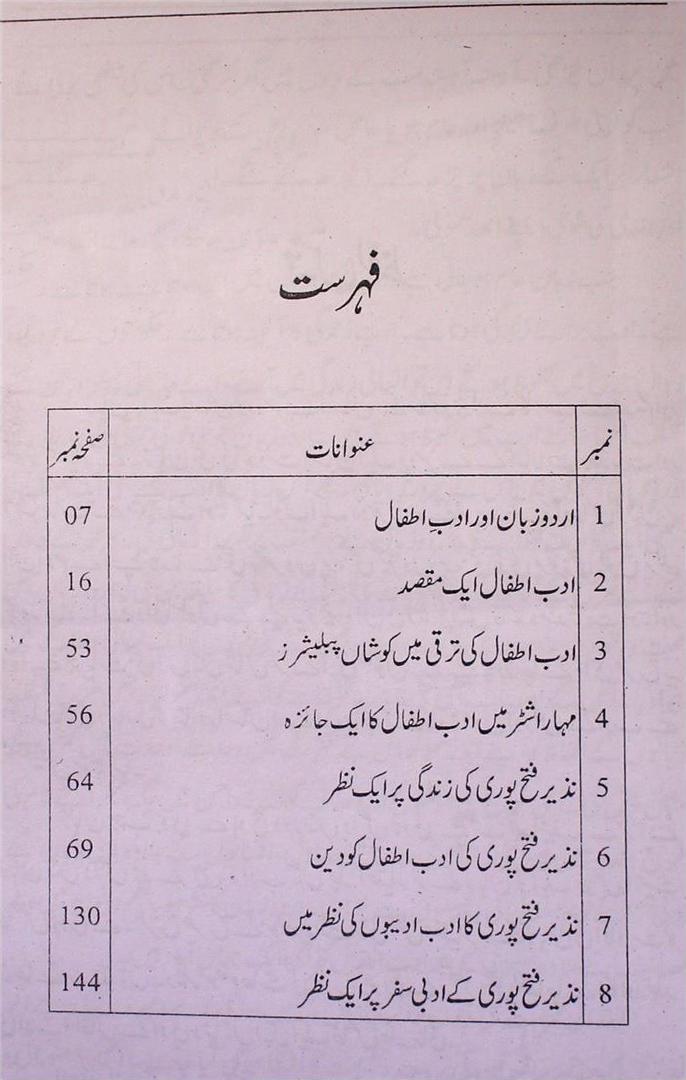 فہرست
نمبر عنوانات صفحہ نمبر
1 اردو زبان اور ادبِ اطفال 07
2 ادب اطفال ایک مقصد 16
3 ادب اطفال کی ترقی میں کوشاں پبلیشرز 53
4 مہاراشٹر میں ادب اطفال کا ایک جائزہ 56
5 نذیر فتح پوری کی زندگی پر ایک نظر 64
6 نذیر فتح پوری کی ادب اطفال کو دین 69
7 نذیر فتح پوری کا ادب ادیبوں کی نظر میں 130
8 نذیر فتح پوری کے ادبی سفر پر ایک نظر 144